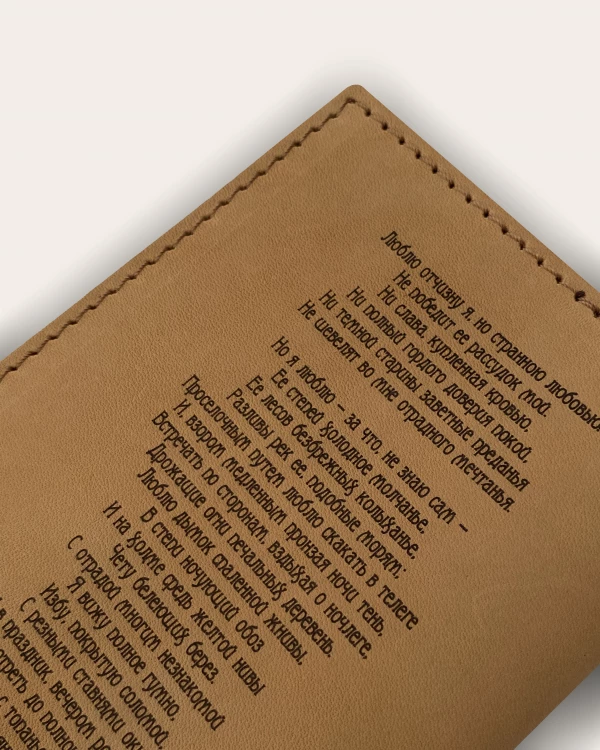 Люблю отчизну я, но странною любовью
Не победит ее рассудок мой.
Ни слава, купленная кровью,
Ни полный гордого доверия покой,
Ни темной старины заветные преданья
Не шевелят во мне отрадного мечтанья.
Но я люблю – за что, не знаю сам –
Ее степей холодное молчанье,
Ее лесов безбрежных колыханье,
Разливы рек ее, подобные морям;
Проселочным путем люблю скакать в телеге
И, взором медленным пронзая ночи тень,
Встречать по сторонам, вздыхая о ночлеге,
Дрожащие огни печальных деревень.
Люблю дымок спаленной жнивы,
В степи ночующий обоз
И на холме средь желтой нивы
Чету белеющих берез
С отрадой многим незнакомой
Я вижу полное гумно,
Избу, покрытую соломой,
С резными ставнями
в праздник, вечером
до
с